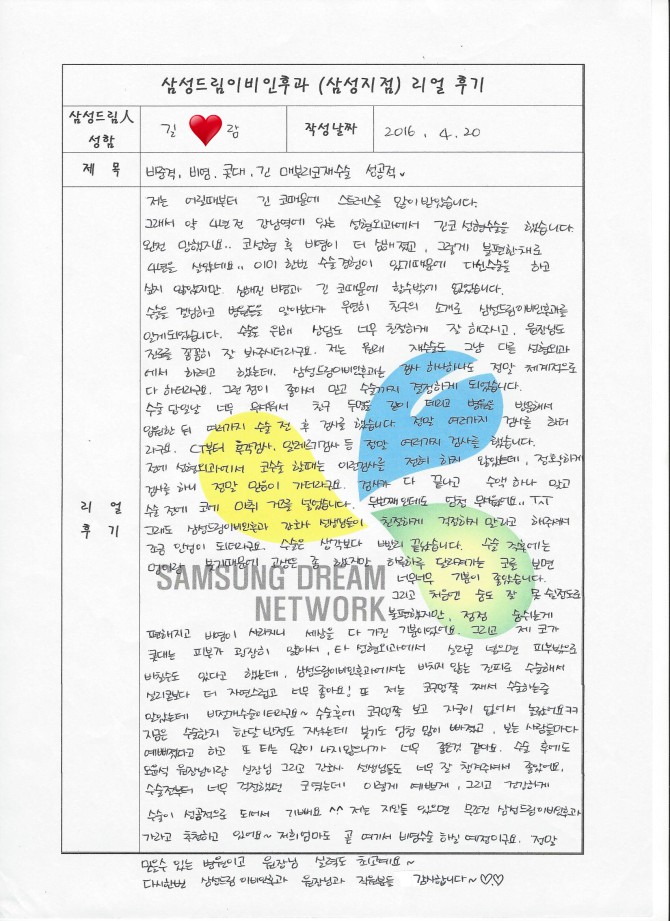 삼성드림이비인후과 (삼성지점) 리얼 후기
삼성드림人
성함
길 ❤ 람
작성날짜
2016. 4. 20
제 목
비중격, 비염, 콧대, 긴 매부리코재수술 성공적
리 얼
후 기
저는 어릴때부터 긴 코때문에 스트레스를 많이 받았습니다.
그래서 약 4년전 강남역에 있는 성형외과에서 긴코 성형수술을 했습니다
완전 망했지요.. 코성형 후 비염이 더 심해졌고, 그렇게 불편한채로
4년을 살았네요.. 이미 한번 수술경험이 있기때문에 다신수술을 하고
싶지 않았지만 심해진 비염과 긴 코때문에 할수밖에 없었습니다.
수술을 결심하고 병원들을 알아보다가 우연히 친구의 소개로 삼성드림이비인후과를
알게되었습니다. 수술을 위해 상담도 너무 친절하게 잘 해주시고, 원장님도
진료를 꼼꼼히 잘 봐주시더라구요. 저는 원래 재수술도 그냥 다른 성형외과
에서 하려고 했는데. 삼성드림이비인후과는 검사 하나하나도 정말 체계적으로
다 하더라구요. 그런 점이 좋아서 믿고 수술까지 결정하게 되었습니다.
수술 당일날 너무 무서워서 친구 두명을 같이 데리고 병원을 방문해서
입원한 뒤 여러가지 수술 전 후 검사를 했습니다. 정말 여러가지 검사를 하더
라구요. CT부터 후각검사, 알레르기검사 등 정말 여러가지 검사를 했습니다.
전에 성형외과에서 코수술 할때는 이런검사를 전혀 하지 않았는데, 정확하게
검사를 하니 정말 믿음이 가더라구요. 검사가 다 끝나고 수액 하나 맞고
수술 전에 코에 마취 거즈를 넣었습니다. 두번째인데도 엄청 무섭네요.. T.T
그래도 삼성드림이비인후과 간호사 선생님들이 친절하게 걱정하지 말라고 해주셔서
조금 안심이 되더라구요. 수술은 생각보다 빨리 끝났습니다. 수술 직후에는
멍이랑 붓기때문에 고생도 좀 했지만 하루하루 달라져가는 코를 보면
SAMSUNG DREAM
NETWORK
너무너무 기분이 좋았습니다.
그리고 처음엔 숨도 잘 못 쉴정도로
불편했지만, 점점 숨쉬는게
편해지고 비염이 사라지니 세상을 다 가진 기분이었어요. 그리고 제 코가
콧대는 피부가 굉장히 얇아서, 타 성형외과에서 실리콘 넣으면 피부밖으로
비칠수도 있다고 했는데, 삼성드림이비인후과에서는 비치지 않는 진피로 수술해서
실리콘보다 더 자연스럽고 너무 좋아요! 또 저는 코구멍쪽 째서 수술하는줄
알았는데 비절개수술이더라구요~ 수술후에 코구멍쪽 보고 자국이 없어서 놀랐어요ㅋㅋ
지금은 수술한지 한달 반정도 지났는데 붓기도 엄청 많이 빠졌고, 보는 사람들마다
예뻐졌다고 하고 또 티는 많이 나지않으니까 너무 좋은것 같아요. 수술 후에도
원장님이랑 실장님 그리고 간호사 선생님들도 너무 잘 챙겨주셔서 좋았어요.
수술전부터 너무 걱정했던 코였는데 이렇게 예쁘게, 그리고 건강하게
수술이 성공적으로 되어서 기뻐요 ^^ 저는 지인들 있으면 무조건 삼성드림이비인후과
가라고 추천하고 있어요~ 저희엄마도 곧 여기서 비염수술 하실 예정이구요. 정말
믿을수 있는 병원이고 원장님 실력도 최고예요~
다시한번 삼성드림이비인후과 원장님과 직원분들 감사합니다~♡♡